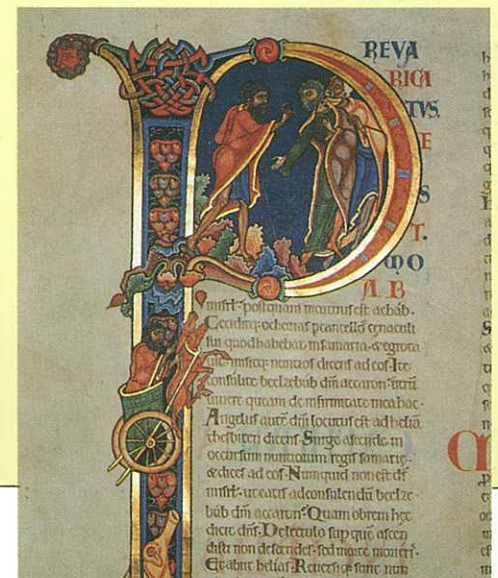 P REVA
RICA
TVS.
E
S
T.
MO
AB
in isrl̄· postquam mortuus est achab·
Ceciditq; ochozias per cancellos cenaculi
sui quod habebat in samaria· & egrota
uit· misitq; nuntios dicens ad eos· Ite
consulite beelzebub dm̄ accaron· utrū
uiuere queam de infirmitate mea hac·
Angelus autē dn̄i locutus est ad heliā
thesbiten dicens· Surge ascende in
occursum nuntiorum regis samarie·
& dices ad eos· Numquid non est ds̄
in isrl̄· ut eatis ad consulendū beelze·
bub dm̄ accaron? Quam obrem hec
dicit dn̄s· De lectulo sup que ascen
disti non descendes· sed morte morieris·
Et abiit helias· Reuersiq; sunt nun